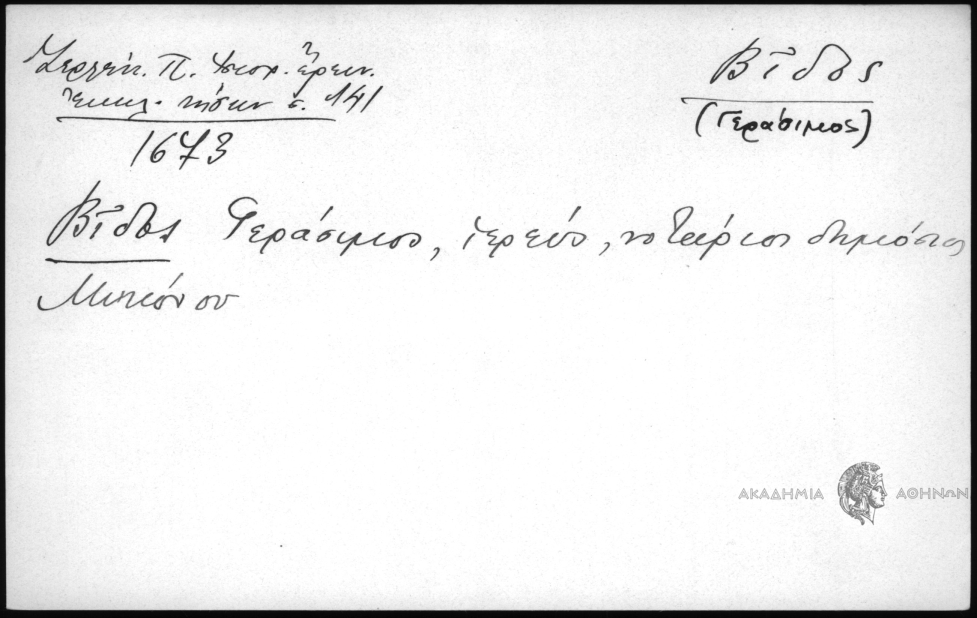 Ζερλέντ. Π. Ἱστορ. ἔρευν.
Ἐκκλ. νήσων σ. 141
1673
Βῖδος
(Γεράσιμος)
Βῖδος Γεράσιμος, ἱερεύς, νοτάριος δημόσιος
Μυκόνου
ΑΚΑΔΗΜΙΑ ΑΘΗΝΩΝ